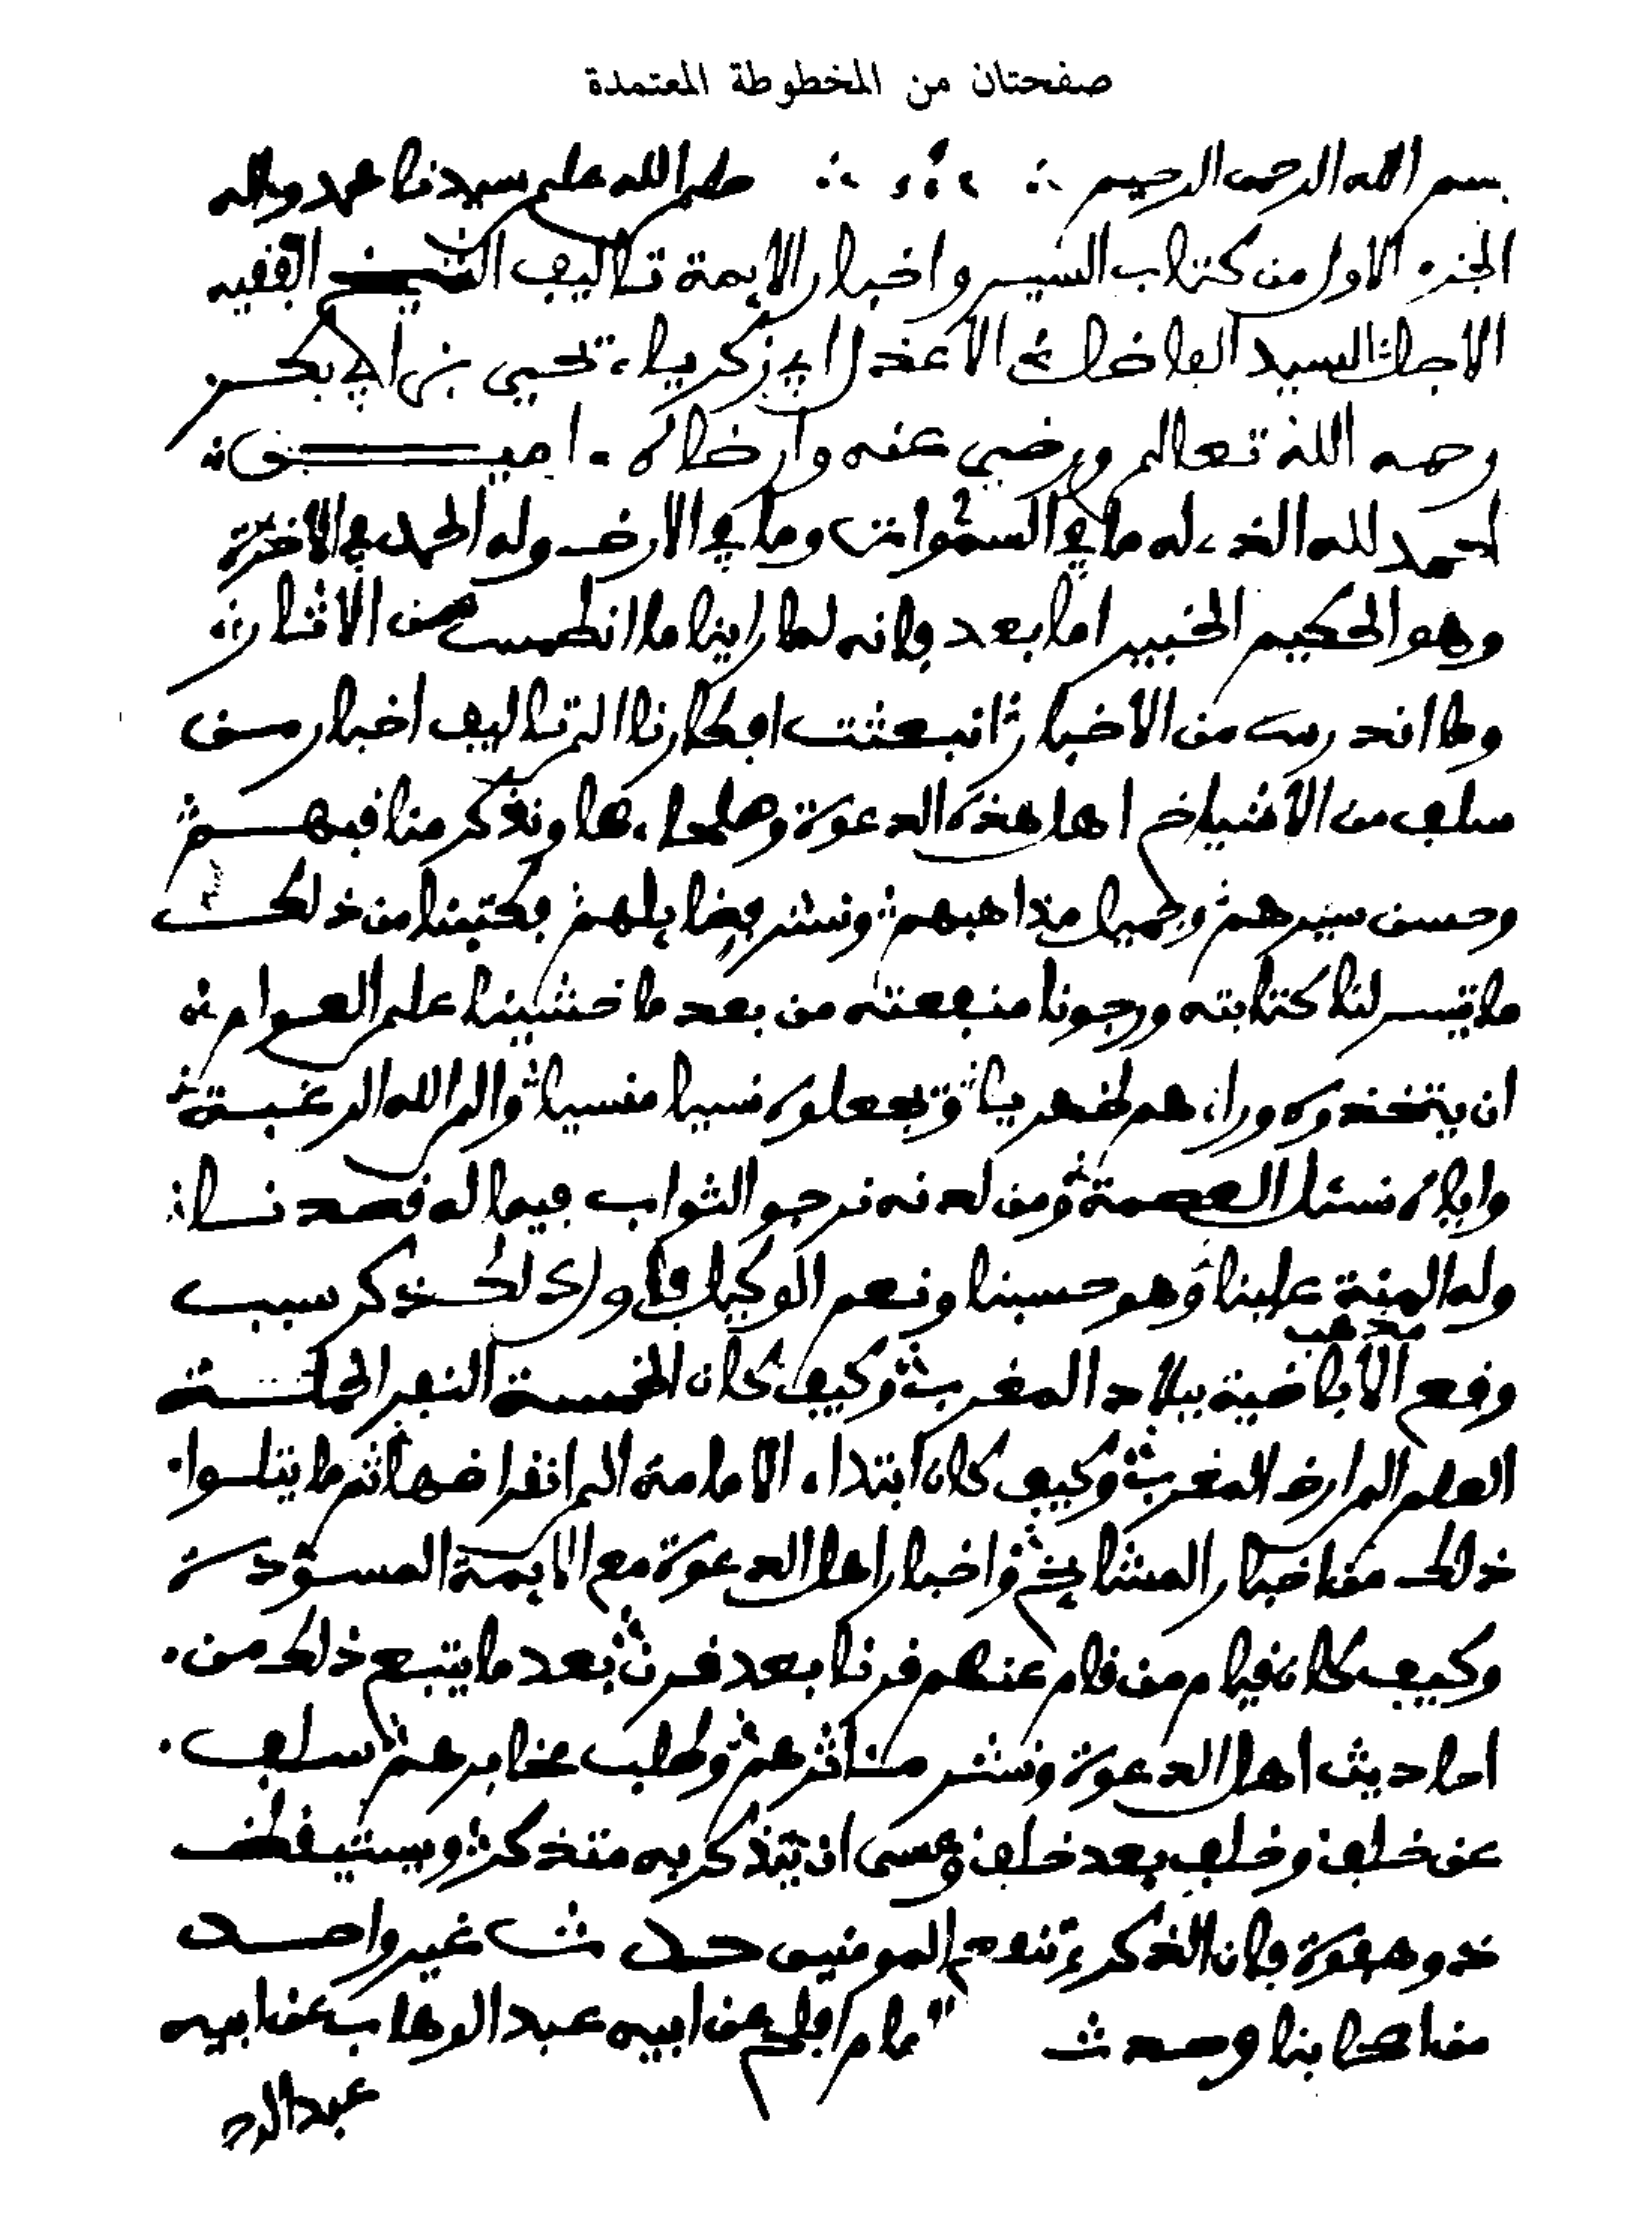 صفحتان من المخطوطة المعتمدة
بسم الله الرحمن الرحيم صلى الله على سيدنا محمد وءاله
الجزء الاول من كتاب السير واخبار الايمة تاليف الشيخ الفقيه
الاجل السيد الفاضل الاعدل ابي زكرياء يحيى بن ابي بكر
رحمه الله تعالى ورضي عنه وارضاه امين
الحمد لله الذي له ما في السموات وما في الارض وله الحمد في الاخرة
وهو الحكيم الخبير اما بعد فانه لما راينا ما انطمس من الاثار
وما اندرس من الاخبار انبعثت افكارنا الى تاليف اخبار من
سلف من الاشياخ اهل هذه الدعوة وصلحاءها ونذكر مناقبهم
وحسن سيرهم وجميل مذاهبهم ونشر فضايلهم فكتبنا من ذلك
ما تيسر لنا كتابته ورجونا منفعته من بعد ما خشينا على العوام
ان يتخذوه وراءهم ظهريا ويجعلوه نسيا منسيا والى الله الرغبة
واياه نسئل العصمة ومن لدنه نرجو الثواب فيما له قصدنا
وله المنة علينا وهو حسبنا ونعم الوكيل فاول ذلك ذكر سبب
مذهب
وقع الاباضية ببلاد المغرب وكيف كان الخمسة النفر الحملة
العلم الى ارض المغرب وكيف كان ابتداء الامامة الى انقراضها ثم ما يتلوا
ذلك من اخبار المشايخ واخبار اهل الدعوة مع الايمة المسودة
وكيف كان قيام من قام عنهم قرنا بعد قرن بعد ما يتبع ذلك من
احاديث اهل الدعوة ونشر مئاثرهم وطلب مخابرهم سلف
عن خلف وخلف بعد خلف وعسى ان يتذكر به متذكر ويستيقظ
ذو هفوة فان الذكرى تنفع المومنين حدث غير واحد
من اصحابنا وحدث الامام افلح عن ابيه عبد الوهاب عن ابيه
عبد الر